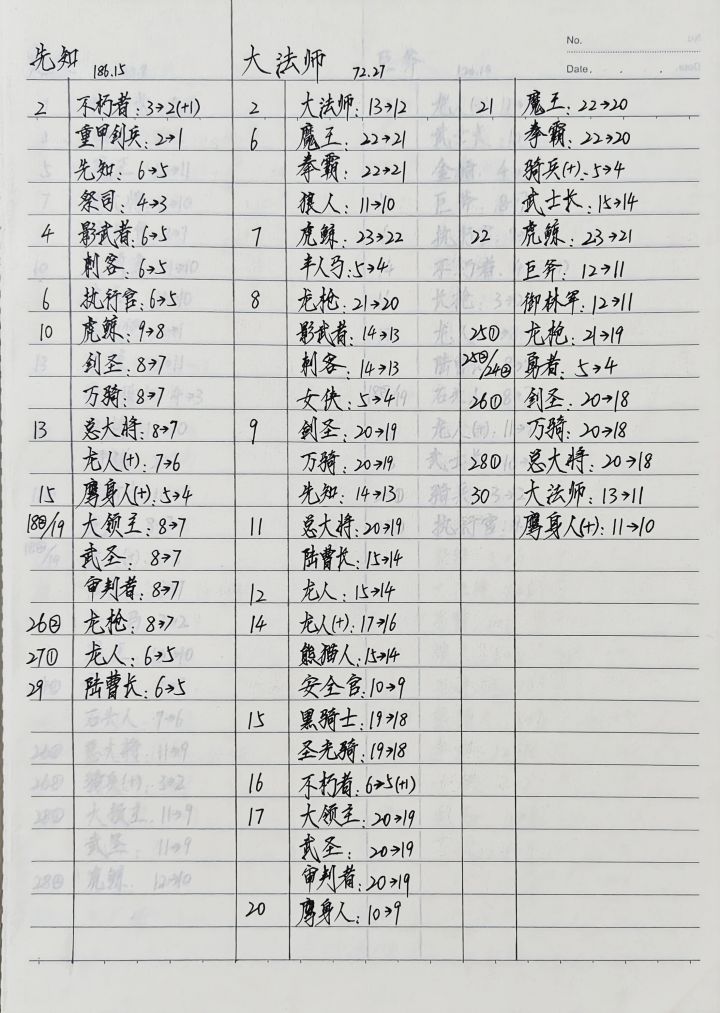 No.
Date.
先知 186.15
2 不朽者：3→2(+1)
重甲剑兵：2→1
先知：6→5
祭司：4→3
4 影武者：6→5
刺客：6→5
6 执行官：6→5
10 虎鲸：9→8
剑圣：8→7
万骑：8→7
13 总大将：8→7
龙人(+)：7→6
15 鹰身人(+)：5→4
18②/19 大领主：8→7
武圣：8→7
审判者：8→7
26② 龙枪：8→7
27① 龙人：6→5
29 陆曹长：6→5
大法师 72.27
2 大法师：13→12
6 魔王：22→21
拳霸：22→21
狼人：11→10
7 虎鲸：23→22
半人马：5→4
8 龙枪：21→20
影武者：14→13
刺客：14→13
女侠：5→4
9 剑圣：20→19
万骑：20→19
先知：14→13
11 总大将：20→19
陆曹长：15→14
12 龙人：15→14
14 龙人(+)：17→16
熊猫人：15→14
安全官：10→9
15 黑骑士：19→18
圣光骑：19→18
16 不朽者：6→5(+1)
17 大领主：20→19
武圣：20→19
审判者：20→19
20 鹰身人：10→9
21 魔王：22→20
拳霸：22→20
骑兵(+)：5→4
武士长：15→14
22 虎鲸：23→21
巨斧：12→11
御林军：12→11
25① 龙枪：21→19
25②/24② 勇者：5→4
26① 剑圣：20→18
万骑：20→18
28① 总大将：20→18
30 大法师：13→11
鹰身人(+)：11→10